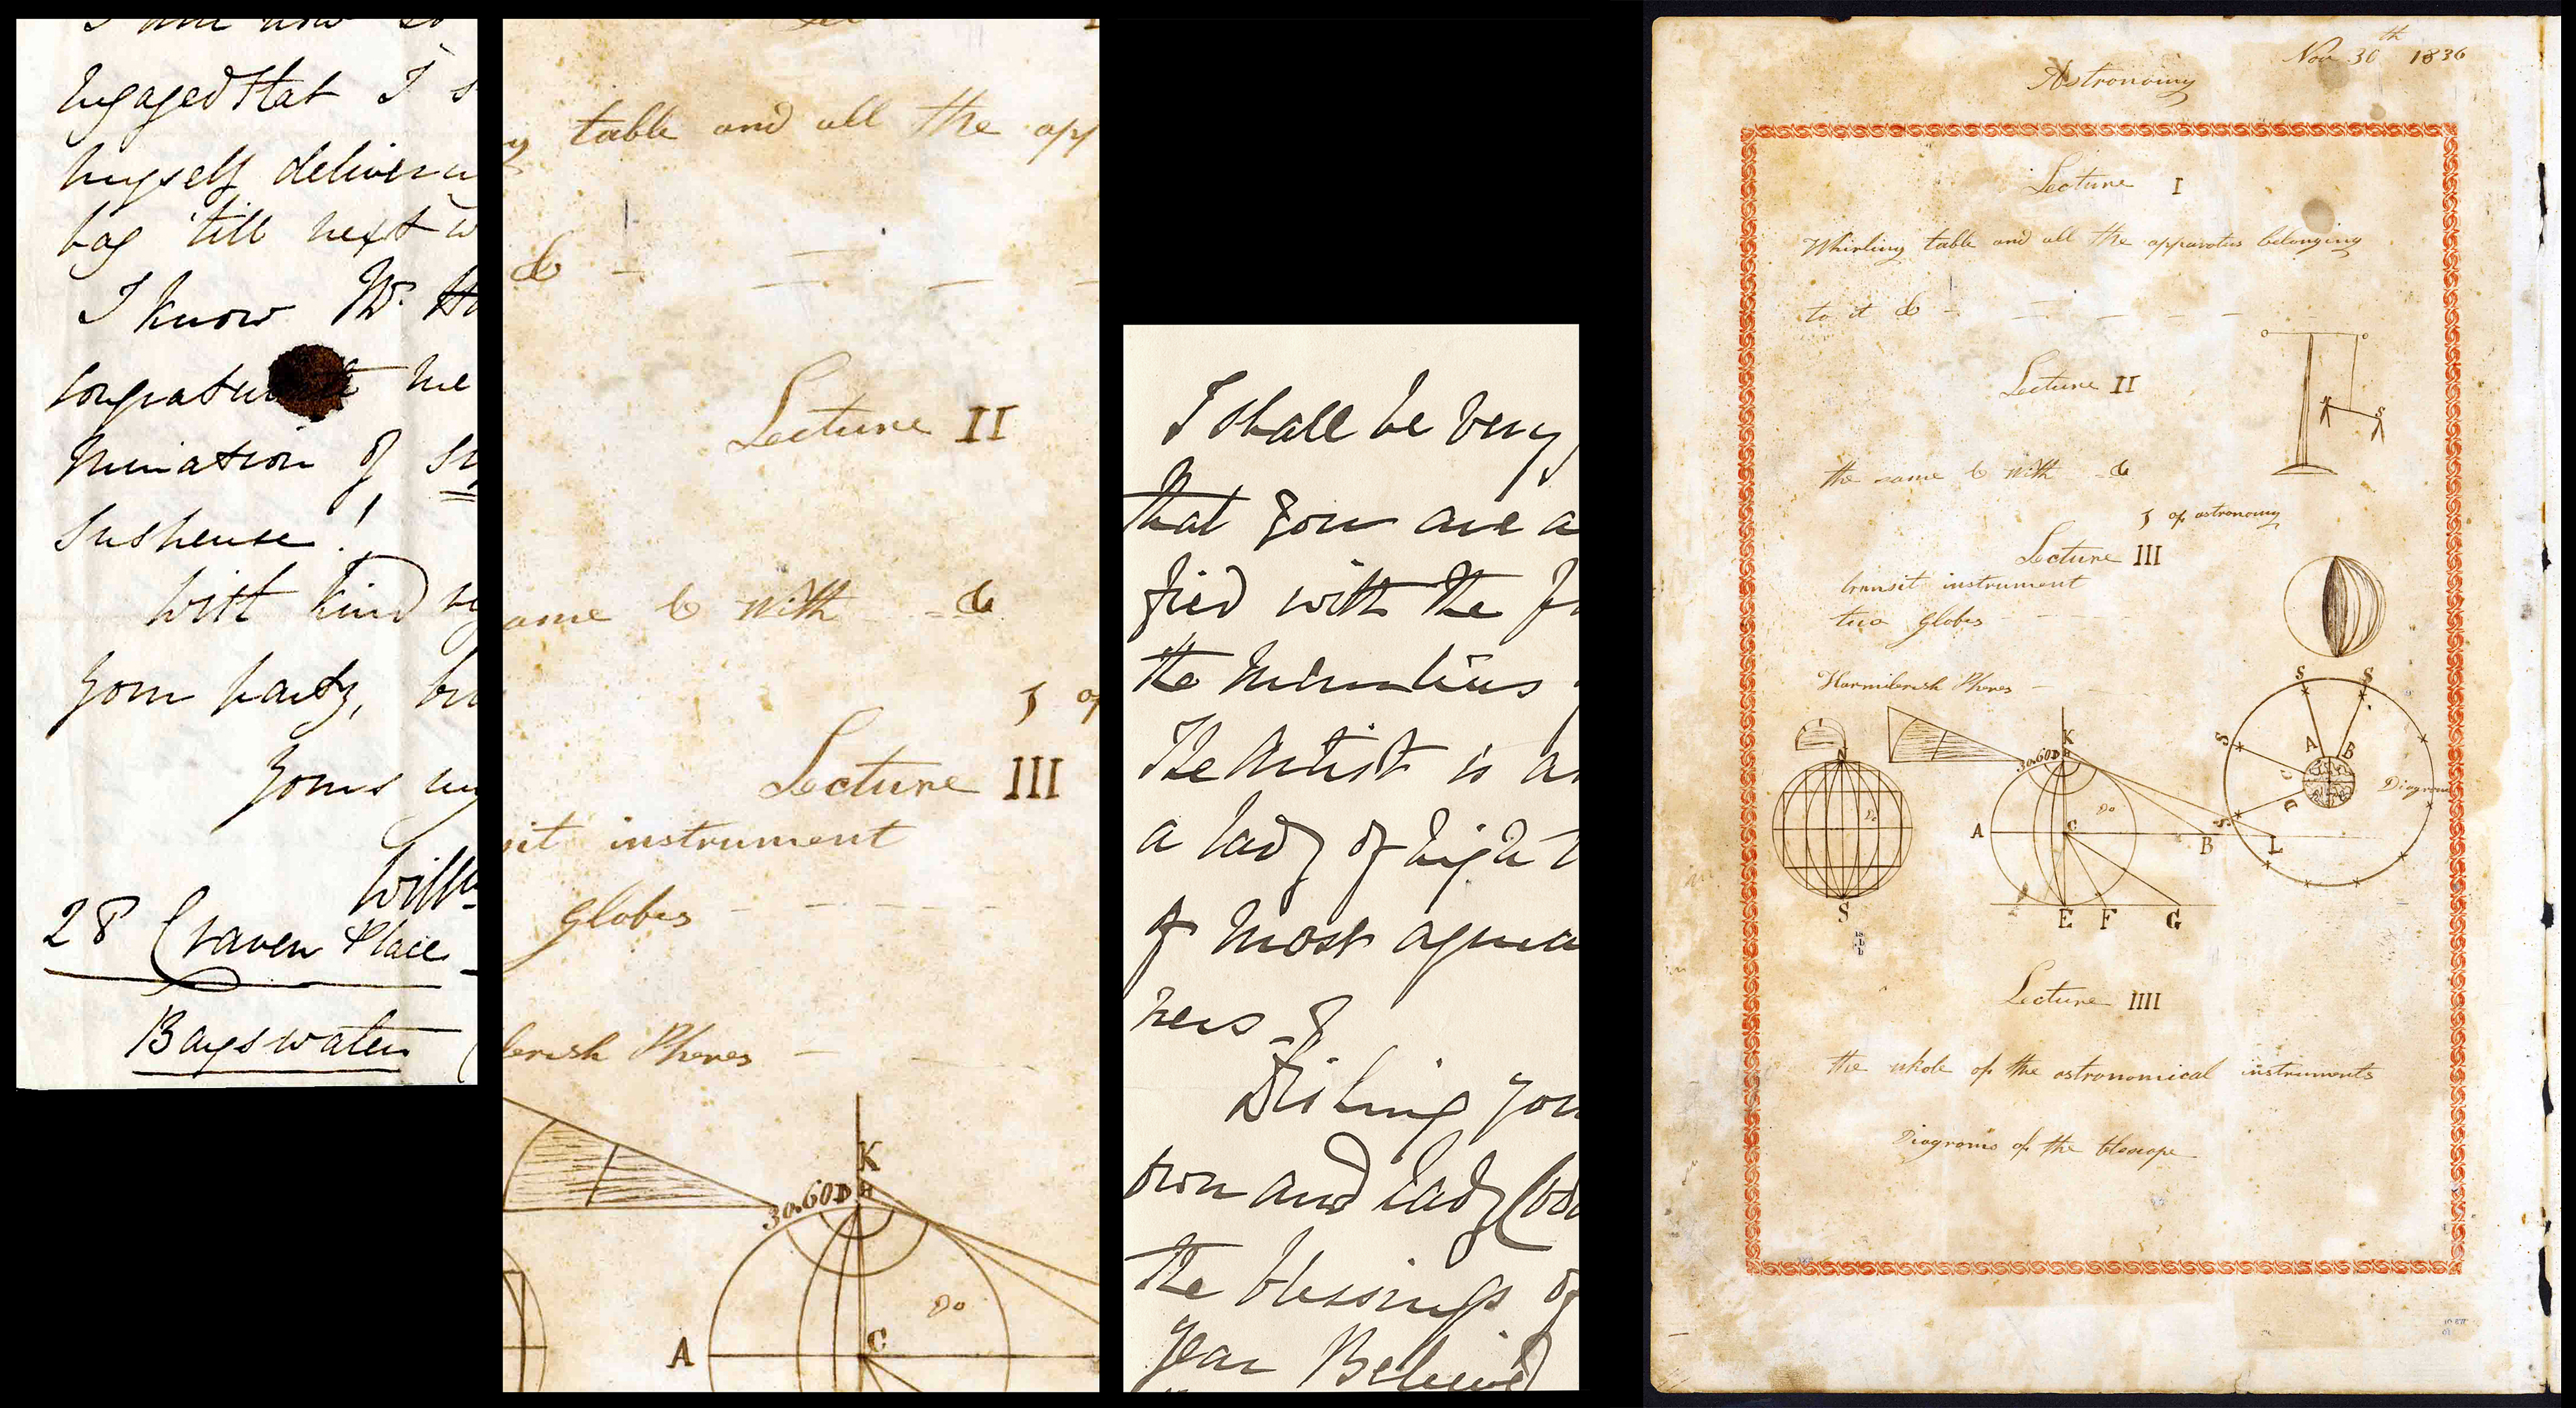 I am now so
Engaged that I s
myself deliver
bag 'till next w
I know Mr.
me
mination of
Suspense!
With kind
your party,
Yours
Will
28 Craven Place
Bayswater
table and all the app
&
Lecture II
ame & with = &
of
Lecture III
sit instrument
globes
Phones
K
30.60 D H
Do
A C
I shall be very
that you are a
fied with the
the miniatures
The Artist is a
a lady of high
of most agreea
ners &
Wishing you
own and Lady
the blessings of
year Believe
Nov 30th 1836
Astronomy
Lecture I
Whirling table and all the apparatus belonging
to it &
Lecture II
the same & with &
of astronomy
Lecture III
transit instrument
two globes
S S
Phones
K
30.60 D H
N
S
A B
S
Diagram
Do
S
A C B L
E F G
S
Lecture IIII
the whole of the astronomical instruments
Diagrams of the telescope